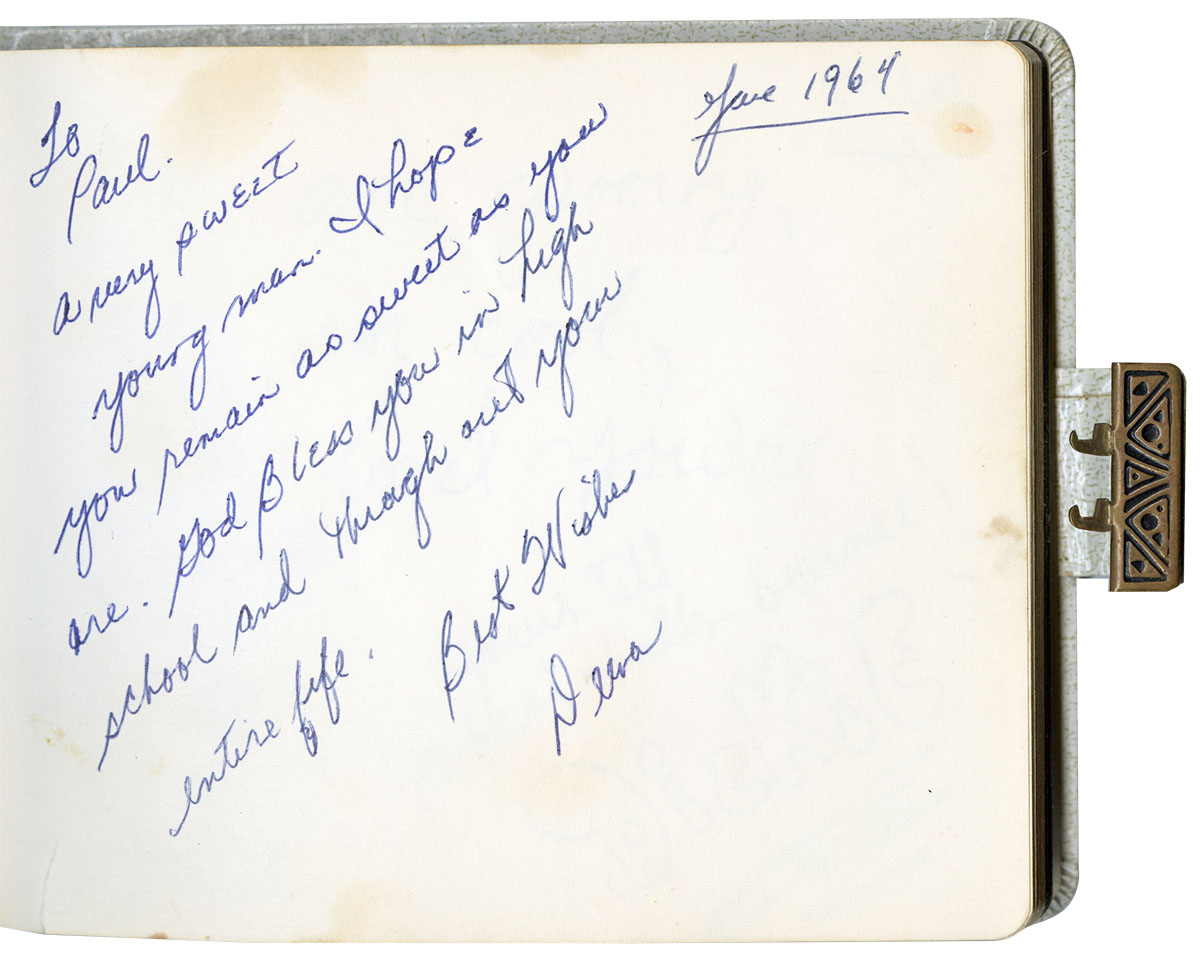 June 1964
To
Paul.
a very sweet
young man. I hope
you remain as sweet as you
are. God Bless you in high
school and through out your
entire life.
Best Wishes